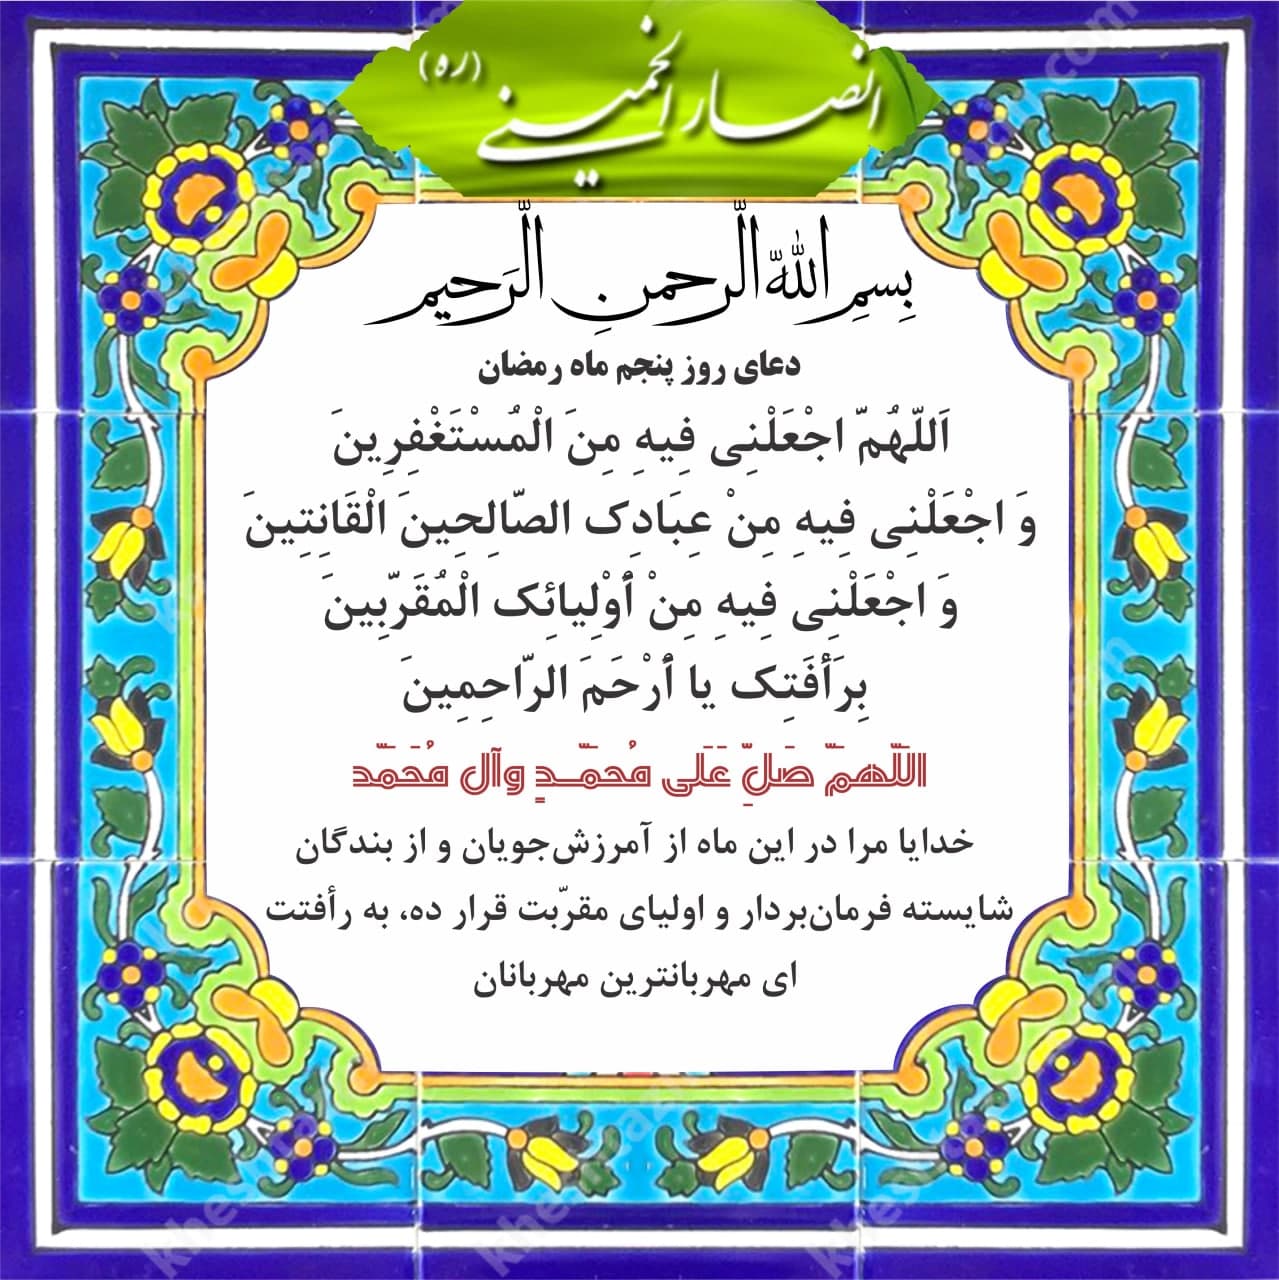 انصار الخمینی (ره)
بِسمِ اللهِ الرَّحمنِ الرَّحیم
دعای روز پنجم ماه رمضان
اَللّهُمّ اجْعَلْنِی فِیهِ مِنَ الْمُسْتَغْفِرِینَ
وَ اجْعَلْنِی فِیهِ مِنْ عِبَادِک الصّالِحِینَ الْقَانِتِینَ
وَ اجْعَلْنِی فِیهِ مِنْ أَوْلِیائِک الْمُقَرّبِینَ
بِرَأفَتِک یا أَرْحَمَ الرّاحِمِینَ
اللَّهمَّ صَلِّ عَلَی مُحمَّـدٍ وآل مُحَمَّد
خدایا مرا در این ماه از آمرزش‌جویان و از بندگان
شایسته فرمان‌بردار و اولیای مقرّبت قرار ده، به رأفتت
ای مهربانترین مهربانان